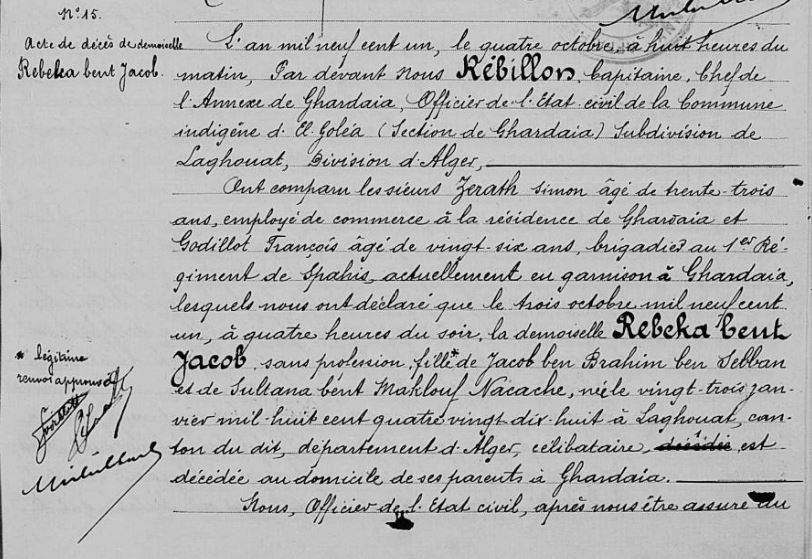 N° 15.
Acte de décès de demoiselle
Rebeka bent Jacob.
L'an mil neuf cent un, le quatre octobre, à huit heures du
matin, Par devant Nous Rébillon, Capitaine, Chef de
l'Annexe de Ghardaia, Officier de l'Etat civil de la Commune
indigène d'El-Goléa (Section de Ghardaia) Subdivision de
Laghouat, Division d'Alger,
Ont comparu les sieurs Zerath Simon âgé de trente-trois
ans, employé de commerce à la résidence de Ghardaia et
Godillot François âgé de vingt-six ans, brigadier au 1er Ré-
giment de Spahis, actuellement en garnison à Ghardaia,
lesquels nous ont déclaré que le trois octobre mil neuf cent
un, à quatre heures du soir, la demoiselle Rebeka bent
Jacob, sans profession, fille* de Jacob ben Brahim ben Sebban
et de Sultana bent Maklouf Nacache, née le vingt-trois jan-
vier mil huit cent quatre vingt dix-huit à Laghouat, can-
ton du dit, département d'Alger, célibataire, décédée est
décédée au domicile de ses parents à Ghardaia.
Nous, Officier de l'Etat civil, après nous être assuré du
* légitime
renvoi approuvé